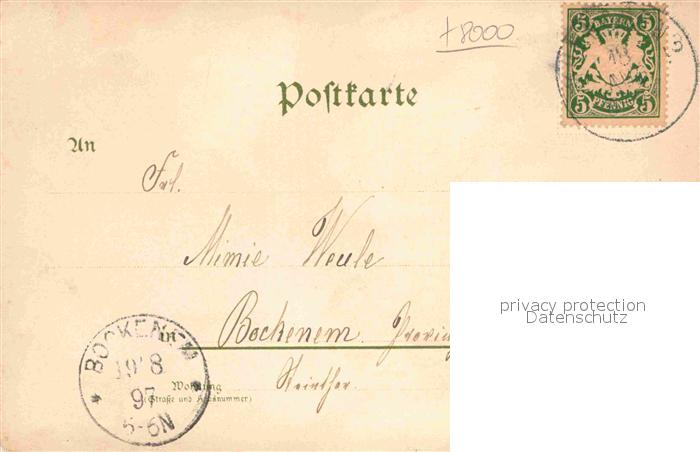 +8000
5 BAYERN 5
5 PFENNIG 5
Postkarte
An
Frl.
Mimie Weule
in Bockenem. Provin
Wohnung
(Straße und Hausnummer)
BOCKENEM
19 8
97
5-6N
privacy protection
Datenschutz